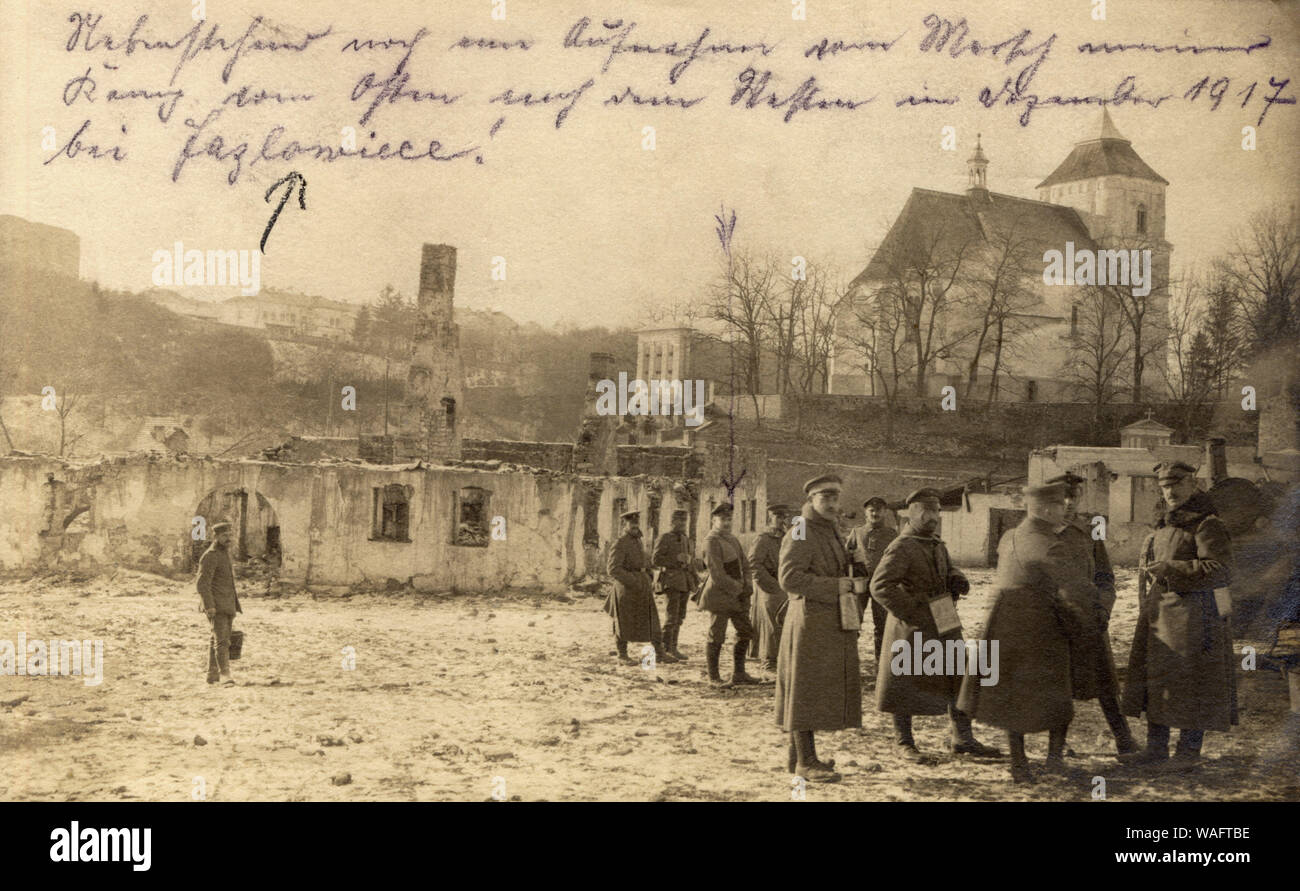 Nebenstehend noch eine Aufnahme vom Marsch meiner
Komp. vom Osten nach dem Westen im Dezember 1917
bei Jazlowiece!
alamy
Image ID: WAFTBE
www.alamy.com